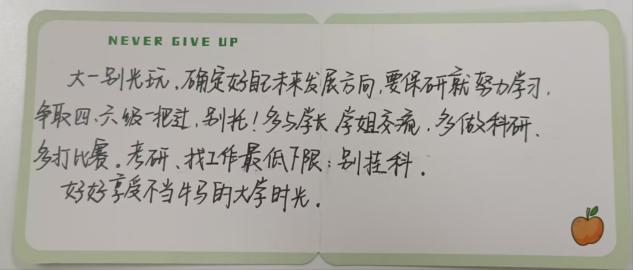 NEVER GIVE UP
大一别光玩，确定好自己未来发展方向，要保研就努力学习，
争取四、六级一把过，别拖！多与学长学姐交流，多做科研、
多打比赛。考研、找工作最低下限：别挂科。
好好享受不当牛马的大学时光。